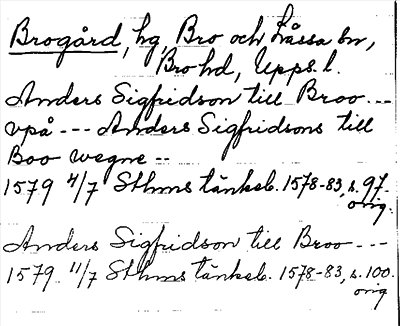 Brogård, hg, Bro och Låssa sn,
Bro hd, Upps. l.
Anders Sigfridson till Broo ---
vpå --- Anders Sigfridsons till
Boo wegne --
1579 4/7 Sthms tänkeb. 1578-83, s. 97.
orig.
Anders Sigfridson till Broo ---
1579 11/7 Sthms tänkeb. 1578-83, s. 100.
orig